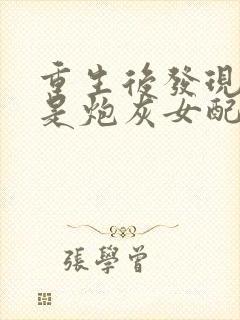 重生後發現
是炮灰女配
張學曾